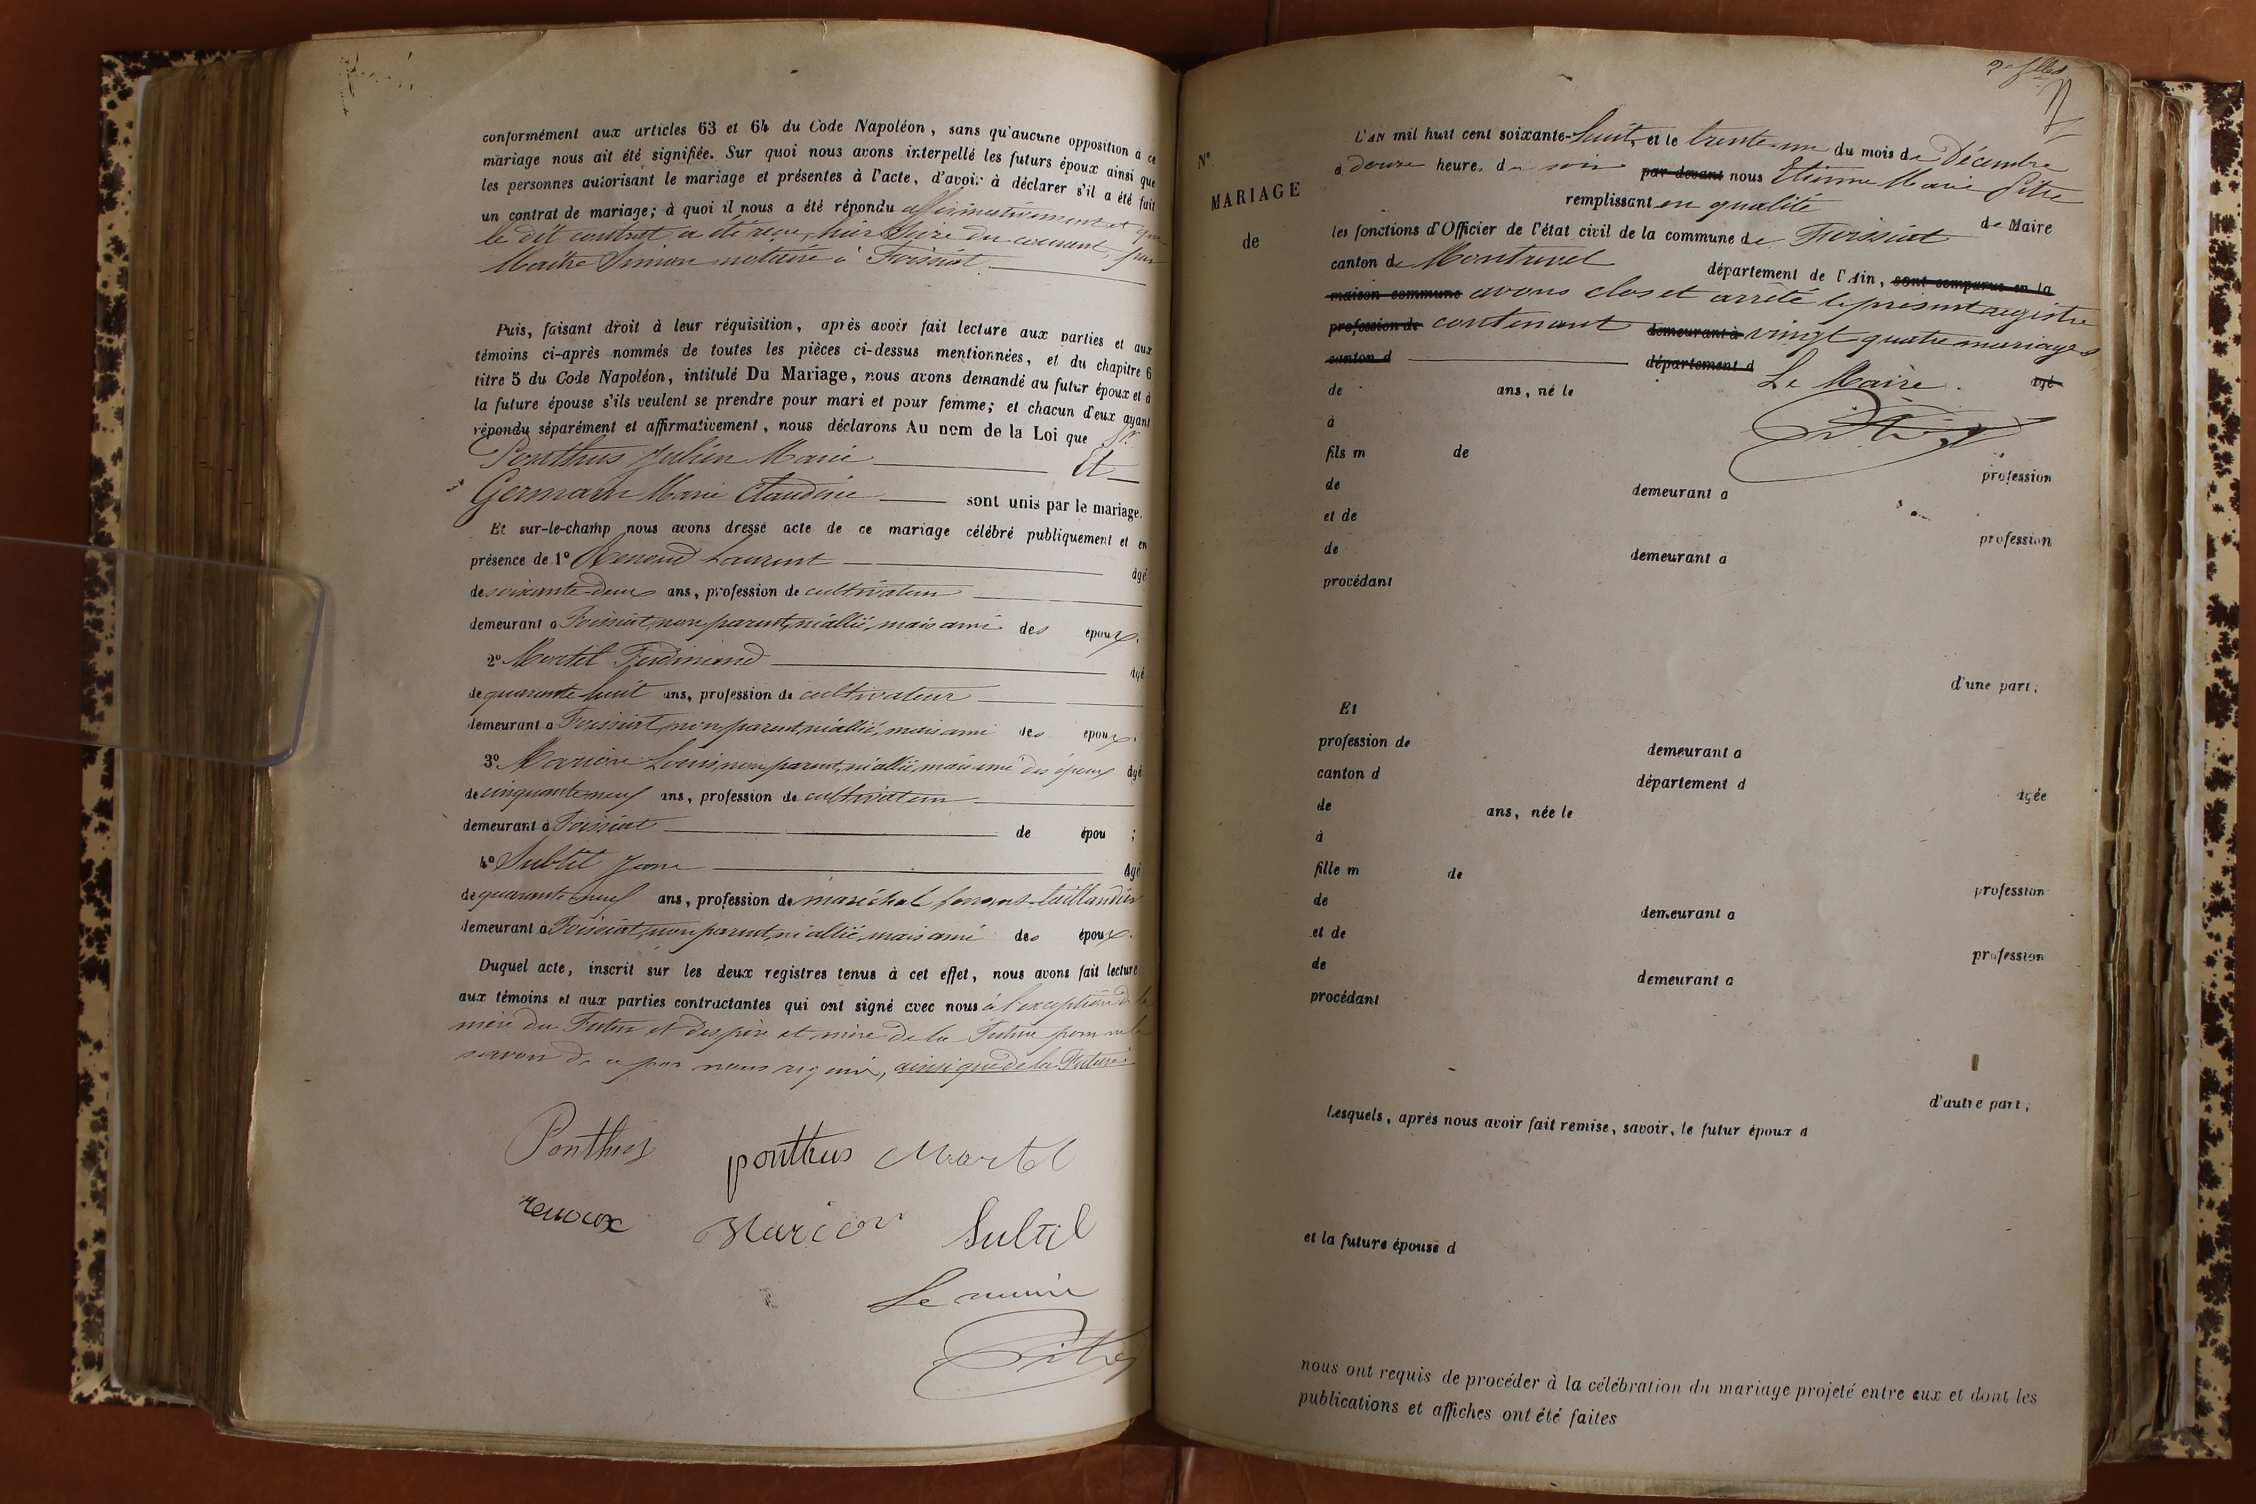 conformément aux articles 63 et 64 du Code Napoléon, sans qu'aucune opposition à ce
mariage nous ait été signifiée. Sur quoi nous avons interpellé les futurs époux ainsi que
les personnes autorisant le mariage et présentes à l'acte, d'avoir à déclarer s'il a été fait
un contrat de mariage; à quoi il nous a été répondu affirmativement et que
le dit contrat a été reçu, hier du courant, par
Maitre Simon notaire à Foissiat
Puis, faisant droit à leur réquisition, après avoir fait lecture aux parties et aux
témoins ci-après nommés de toutes les pièces ci-dessus mentionnées, et du chapitre 6
titre 5 du Code Napoléon, intitulé Du Mariage, nous avons demandé au futur époux et à
la future épouse s'ils veulent se prendre pour mari et pour femme; et chacun d'eux ayant
répondu séparément et affirmativement, nous déclarons Au nom de la Loi que Sr
Ponthus Julien Marie Et
Germain Marie Claudine sont unis par le mariage.
Et sur-le-champ nous avons dressé acte de ce mariage célébré publiquement et en
présence de 1° Renoud Laurent âgé
de soixante deux ans, profession de cultivateur
demeurant à Foissiat, non parent, ni allié, mais ami des époux.
2° Martel Ferdinand âgé
de quarante huit ans, profession de cultivateur
demeurant à Foissiat, non parent, ni allié, mais ami des époux.
3° Marion Louis, non parent, ni allié, mais ami des époux âgé
de cinquante neuf ans, profession de cultivateur
demeurant à Foissiat de épou ;
4° Subtil Jean âgé
de quarante neuf ans, profession de maréchal ferrant taillandier
demeurant à Foissiat, non parent, ni allié, mais ami des époux.
Duquel acte, inscrit sur les deux registres tenus à cet effet, nous avons fait lecture
aux témoins et aux parties contractantes qui ont signé avec nous à l'exception de la
mère du Futur et des père et mère de la Future pour ne le
savoir de ce par nous requis, ainsi que de la Future
Ponthus ponthus Martel
renoux Marion Subtil
Le maire
Pitre
N°.
MARIAGE
de
L'AN mil huit cent soixante-huit, et le trente-un du mois de Décembre
à douze heures du soir par-devant nous Etienne Marie Pitre
remplissant en qualité de Maire
les fonctions d'Officier de l'état civil de la commune de Foissiat
canton de Montrevel département de l'Ain, sont comparus en la
maison commune avons clos et arrêté le présent registre
profession de contenant demeurant à vingt quatre mariages
canton d département d
Le Maire. âgé
de ans, né le
à Pitre
fils m de
profession
de demeurant à
et de
profession
de demeurant à
procédant
d'une part;
Et
profession de demeurant à
canton d département d
âgée
de ans, née le
à
fille m de
profession
de demeurant à
et de
profession
de demeurant à
procédant
d'autre part;
Lesquels, après nous avoir fait remise, savoir, le futur époux d
et la future épouse d
nous ont requis de procéder à la célébration du mariage projeté entre eux et dont les
publications et affiches ont été faites